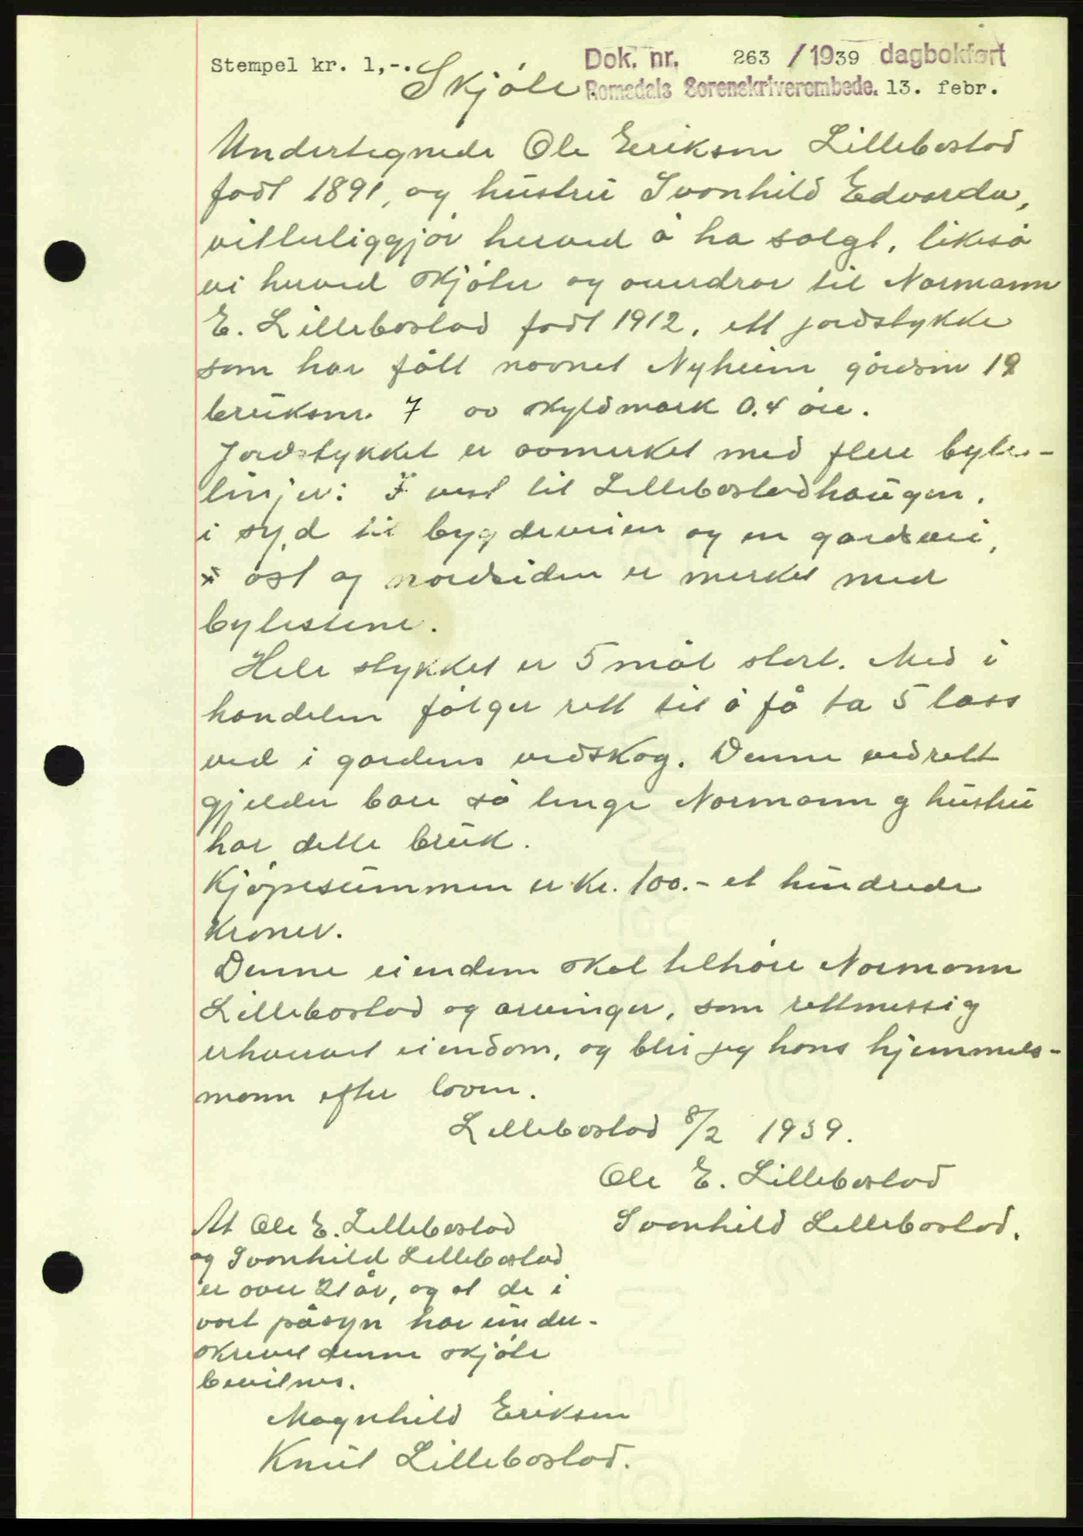 Stempel kr. 1,-.
Skjöte
Dok. nr. 263 / 1939 dagbokført
Romsdals Sorenskriverembede. 13. febr.
Undertegnede Ole Eriksen Lillebostad
født 1891, og hustru Svanhild Edvarda,
vitterliggjør herved å ha solgt, likeså
vi herved skjöter og overdrar til Normann
E. Lillebostad født 1912, ett jordstykke
som har fått navnet Nyheim gårdsnr 19
bruksnr. 7 av skyldmark 0.4 öre.
Jordstykket er avmerket med flere byte-
linjer: I vest til Lillebostadhaugen.
i syd til bygdeveien og en gardsvei,
i öst og nordsiden er merket med
bytestene.
Hele stykket er 5 mål stort. Med i
handelen fölger rett til å få ta 5 lass
ved i gardens vedskog. Denne vedrett
gjelder bare så lenge Normann og hustru
har dette bruk.
Kjöpesummen er Kr. 100.- et hundrede
Kroner.
Denne eiendom skal tilhöre Normann
Lillebostad og arvinger, som rettmessig
erhvervet eiendom, og blir jeg hans hjemmels-
mann efter loven.
Lillebostad 8/2 1939.
Ole E. Lillebostad
Svanhild Lillebostad.
At Ole E. Lillebostad
og Svanhild Lillebostad
er over 21 år, og at de i
vort påsyn har under-
skrevet denne skjöte
bevitnes.
Magnhild Eriksen
Knut Lillebostad.